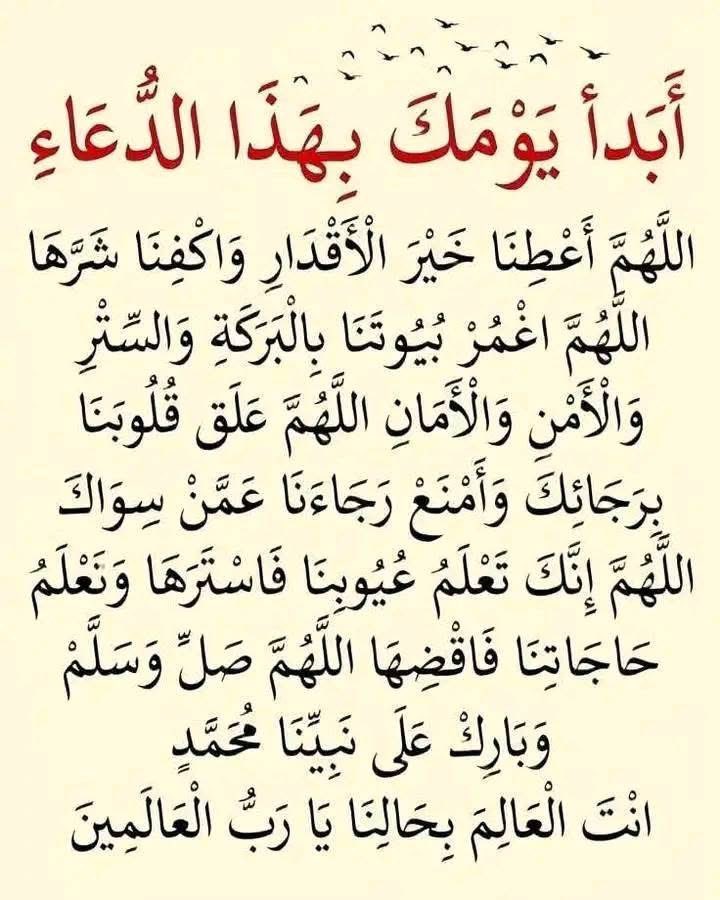 أَبَدأ يَوْمَكَ بِهَذَا الدُّعَاءِ
اللَّهُمَّ أَعْطِنَا خَيْرَ الْأَقْدَارِ وَاكْفِنَا شَرَّهَا
اللَّهُمَّ اغْمُرْ بُيُوتَنَا بِالْبَرَكَةِ وَالسِّتْرِ
وَالْأَمْنِ وَالْأَمَانِ اللَّهُمَّ عَلَق قُلُوبَنَا
بِرَجَائِكَ وَأَمْنَعْ رَجَاءَنَا عَمَّنْ سِوَاكَ
اللَّهُمَّ إِنَّكَ تَعْلَمُ عُيُوبِنَا فَاسْتَرَهَا وَنَعْلَمُ
حَاجَاتِنَا فَاقْضِهَا اللَّهُمَّ صَلِّ وَسَلَّمْ
وَبَارِكْ عَلَى نَبِيِّنَا مُحَمَّدٍ
انْتَ الْعَالِمَ بِحَالِنَا يَا رَبُّ الْعَالَمِينَ